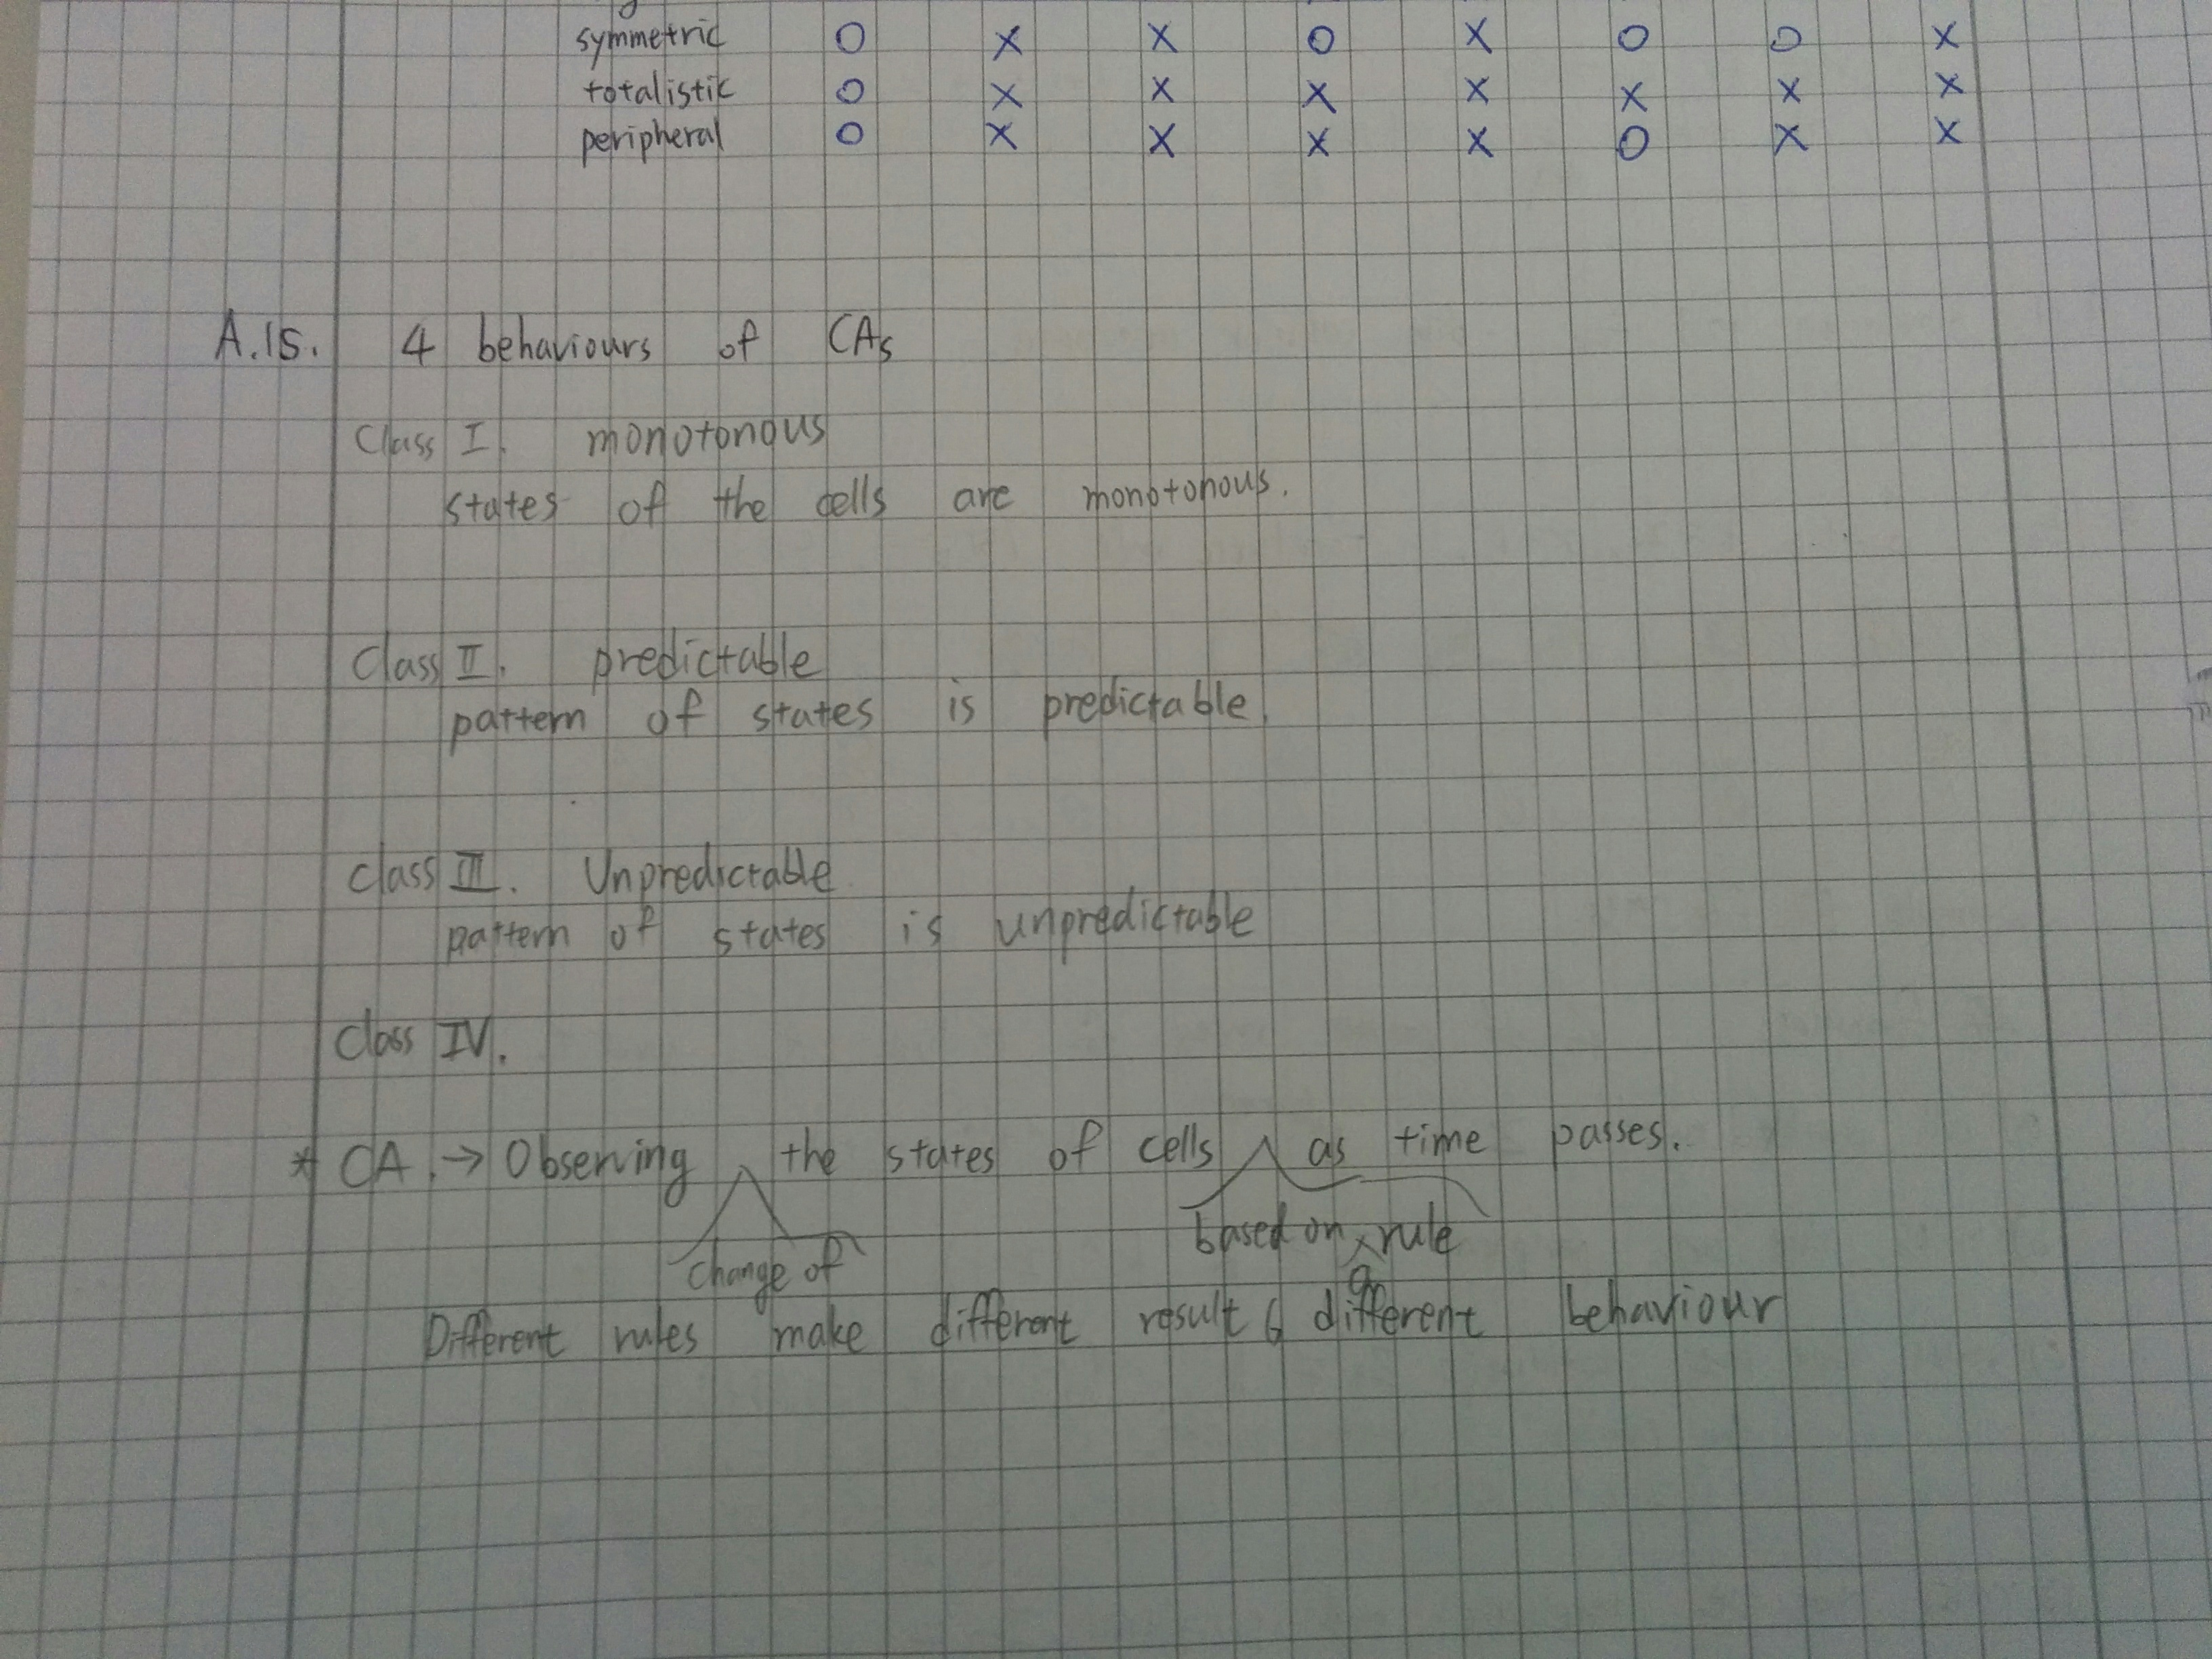 symmetric O X X O X O O X
totalistic O X X X X X X X
peripheral O X X X X O X X
A.15. 4 behaviours of CAs
Class I. monotonous
states of the cells are monotonous.
Class II. predictable
pattern of states is predictable
Class III. Unpredictable
pattern of states is unpredictable
Class IV.
* CA. → Observing the states of cells as time passes.
based on rule
a
change of
Different rules make different result & different behaviour